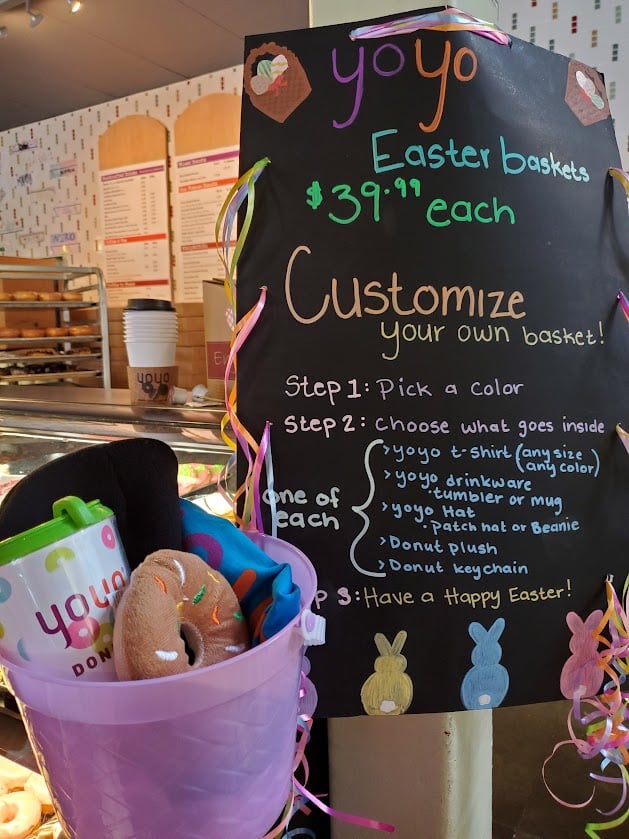 yoyo
Easter baskets
$39.99 each
Customize
your own basket!
Step 1: Pick a color
Step 2: choose what goes inside
one of each
> yoyo t-shirt (any size any color)
> yoyo drinkware
· tumbler or mug
> yoyo Hat
· patch hat or Beanie
> Donut plush
> Donut keychain
p 3: Have a Happy Easter!
yoyo
yoyo
DON